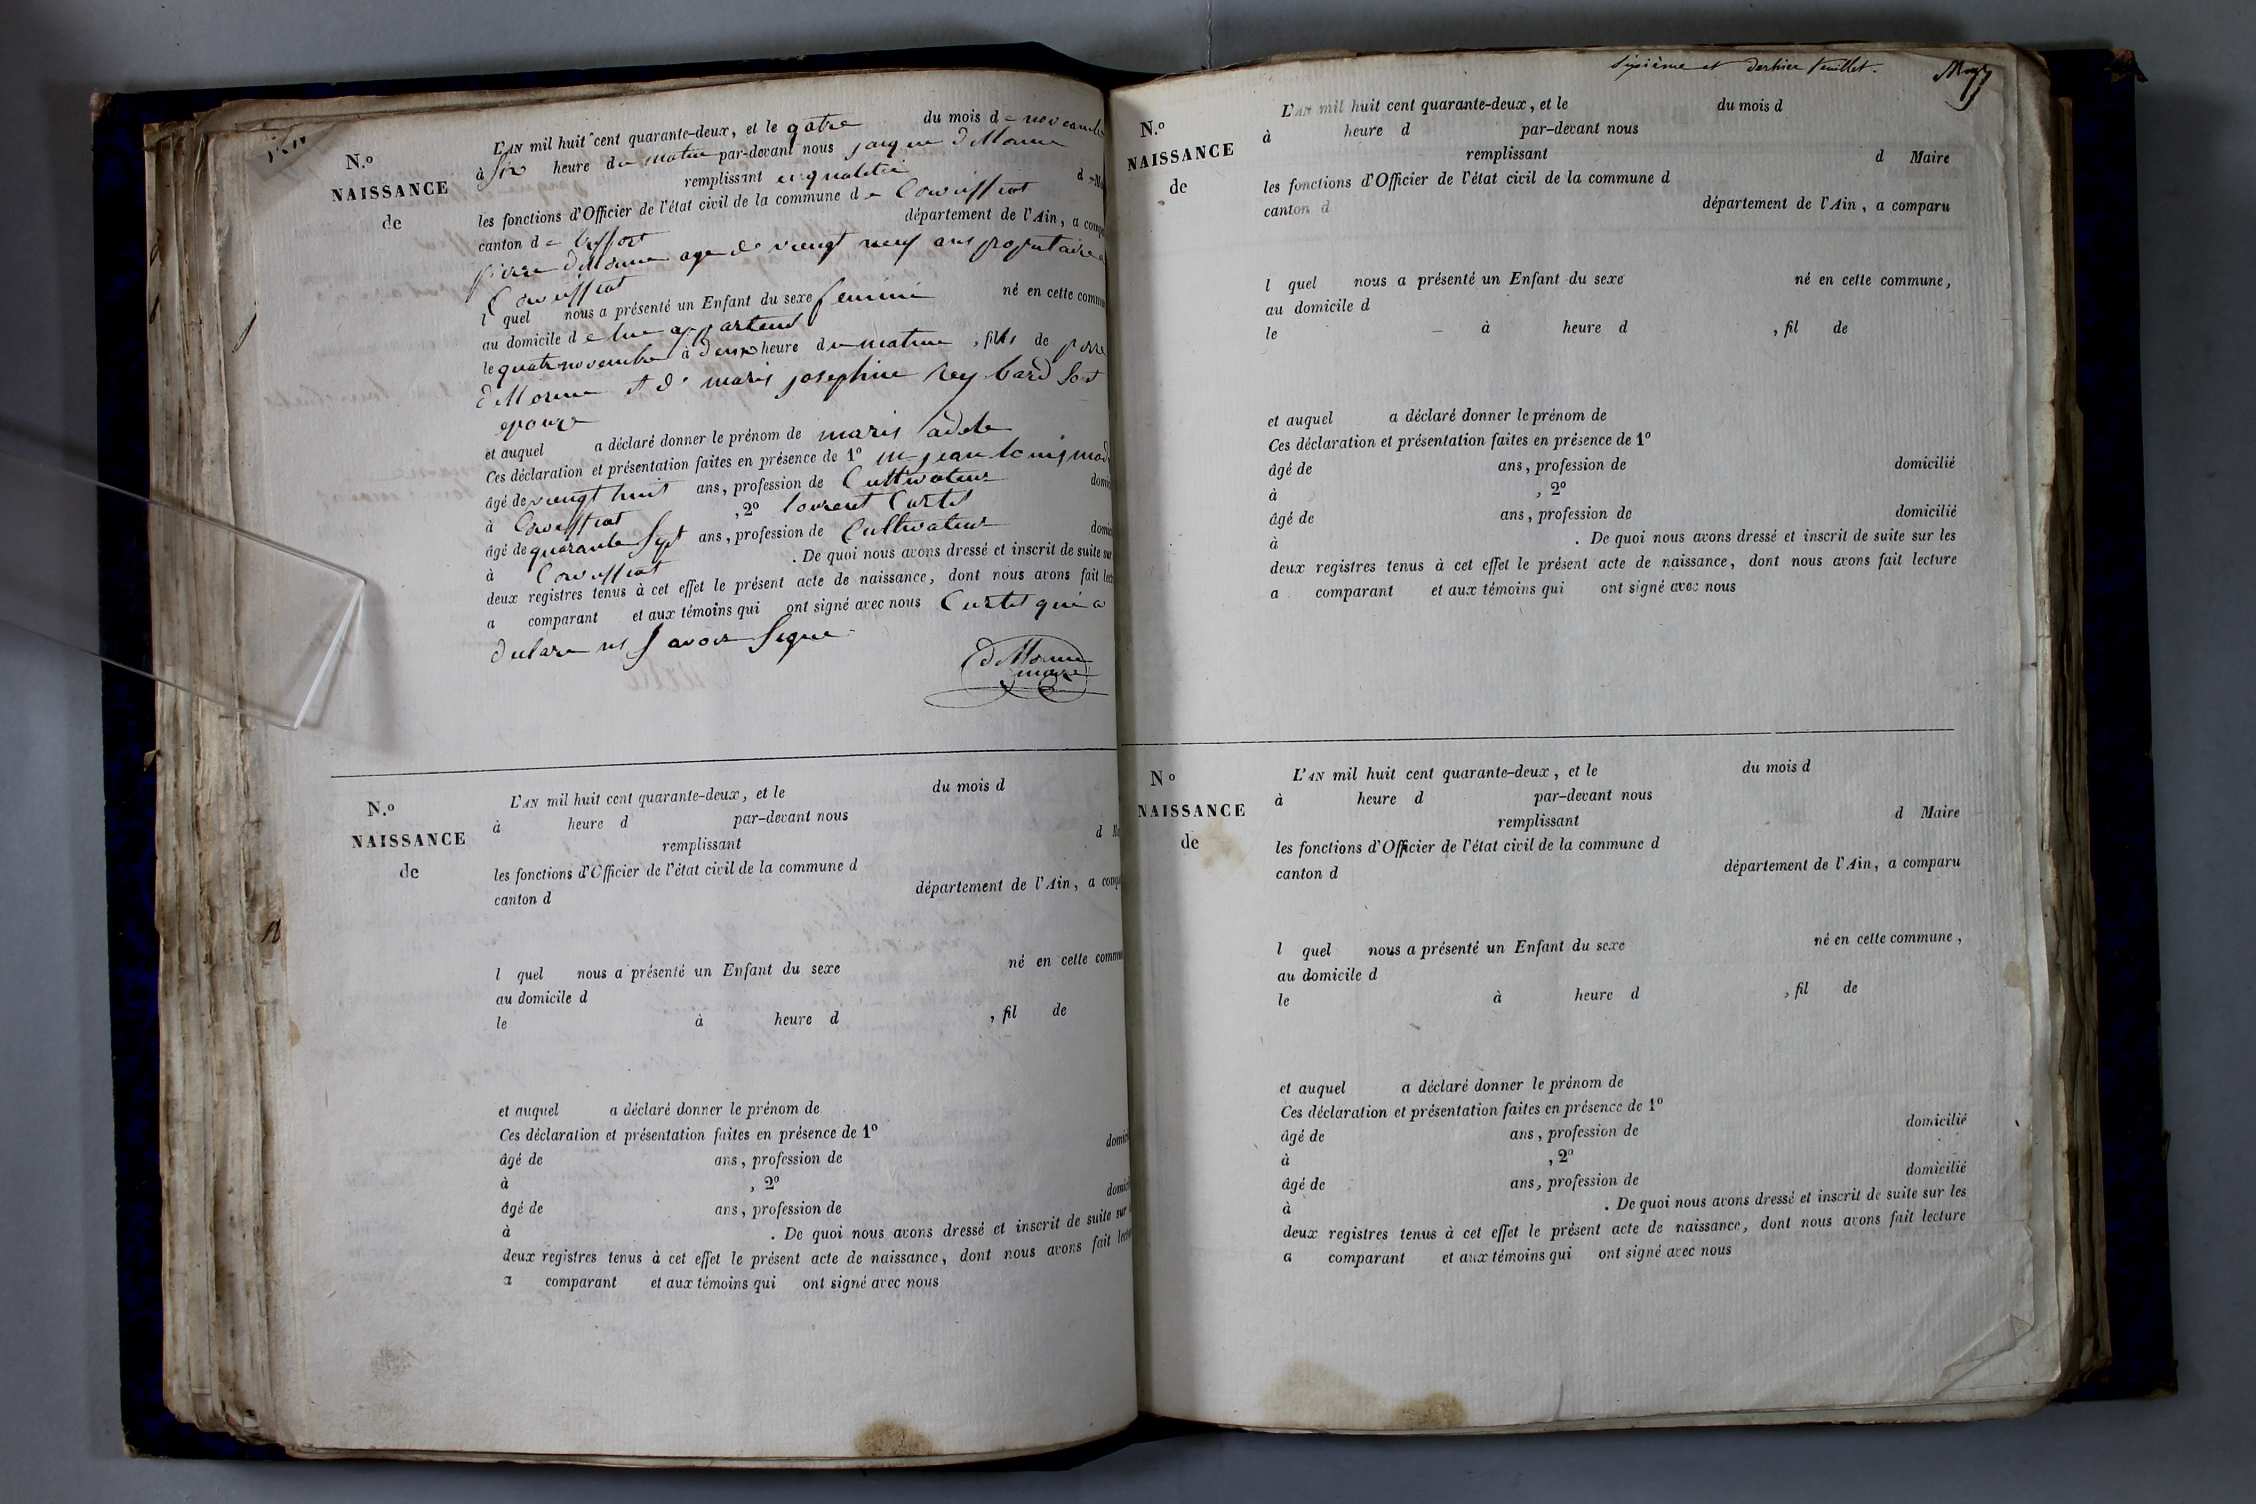 N.º
NAISSANCE
de
L'AN mil huit cent quarante-deux, et le qatre du mois de novembre
à six heure du matin par-devant nous jacque d Morme
remplissant en qualité d
les fonctions d'Officier de l'état civil de la commune de
canton de département de l'Ain, a
pierre d Morme age de vieugt neuf ans
l quel nous a présenté un Enfant du sexe feminin né en cette
au domicile de lue apartend
le quatre novembre à deux heure du matin, fille de
d Morme et de marie josephine Rey bard Sont
epouze
et auquel a déclaré donner le prénom de marie adele
Ces déclaration et présentation faites en présence de 1º jean
âgé de vieugt huit ans, profession de Cultivateur
à , 2º lourent Curtet
âgé de quarante Sept ans, profession de Cultivateur
à . De quoi nous avons dressé et inscrit de suite
deux registres tenus à cet effet le présent acte de naissance, dont nous avons fait
a comparant et aux témoins qui ont signé avec nous Curtet qui a
declare ne Savoir Signe
d Morme
maire
N.º
NAISSANCE
de
L'AN mil huit cent quarante-deux, et le du mois d
à heure d par-devant nous
remplissant d
les fonctions d'Officier de l'état civil de la commune d
canton d département de l'Ain, a
l quel nous a présenté un Enfant du sexe né en cette
au domicile d
le à heure d , fil de
et auquel a déclaré donner le prénom de
Ces déclaration et présentation faites en présence de 1º
âgé de ans, profession de
à , 2º
âgé de ans, profession de
à . De quoi nous avons dressé et inscrit de suite sur
deux registres tenus à cet effet le présent acte de naissance, dont nous avons fait
a comparant et aux témoins qui ont signé avec nous
Sixième et dernier feuillet.
N.º
NAISSANCE
de
L'AN mil huit cent quarante-deux, et le du mois d
à heure d par-devant nous
remplissant d Maire
les fonctions d'Officier de l'état civil de la commune d
canton d département de l'Ain, a comparu
l quel nous a présenté un Enfant du sexe né en cette commune,
au domicile d
le à heure d , fil de
et auquel a déclaré donner le prénom de
Ces déclaration et présentation faites en présence de 1º
âgé de ans, profession de domicilié
à , 2º
âgé de ans, profession de domicilié
à . De quoi nous avons dressé et inscrit de suite sur les
deux registres tenus à cet effet le présent acte de naissance, dont nous avons fait lecture
a comparant et aux témoins qui ont signé avec nous
Nº
NAISSANCE
de
L'AN mil huit cent quarante-deux, et le du mois d
à heure d par-devant nous
remplissant d Maire
les fonctions d'Officier de l'état civil de la commune d
canton d département de l'Ain, a comparu
l quel nous a présenté un Enfant du sexe né en cette commune,
au domicile d
le à heure d , fil de
et auquel a déclaré donner le prénom de
Ces déclaration et présentation faites en présence de 1º
âgé de ans, profession de domicilié
à , 2º
âgé de ans, profession de domicilié
à . De quoi nous avons dressé et inscrit de suite sur les
deux registres tenus à cet effet le présent acte de naissance, dont nous avons fait lecture
a comparant et aux témoins qui ont signé avec nous